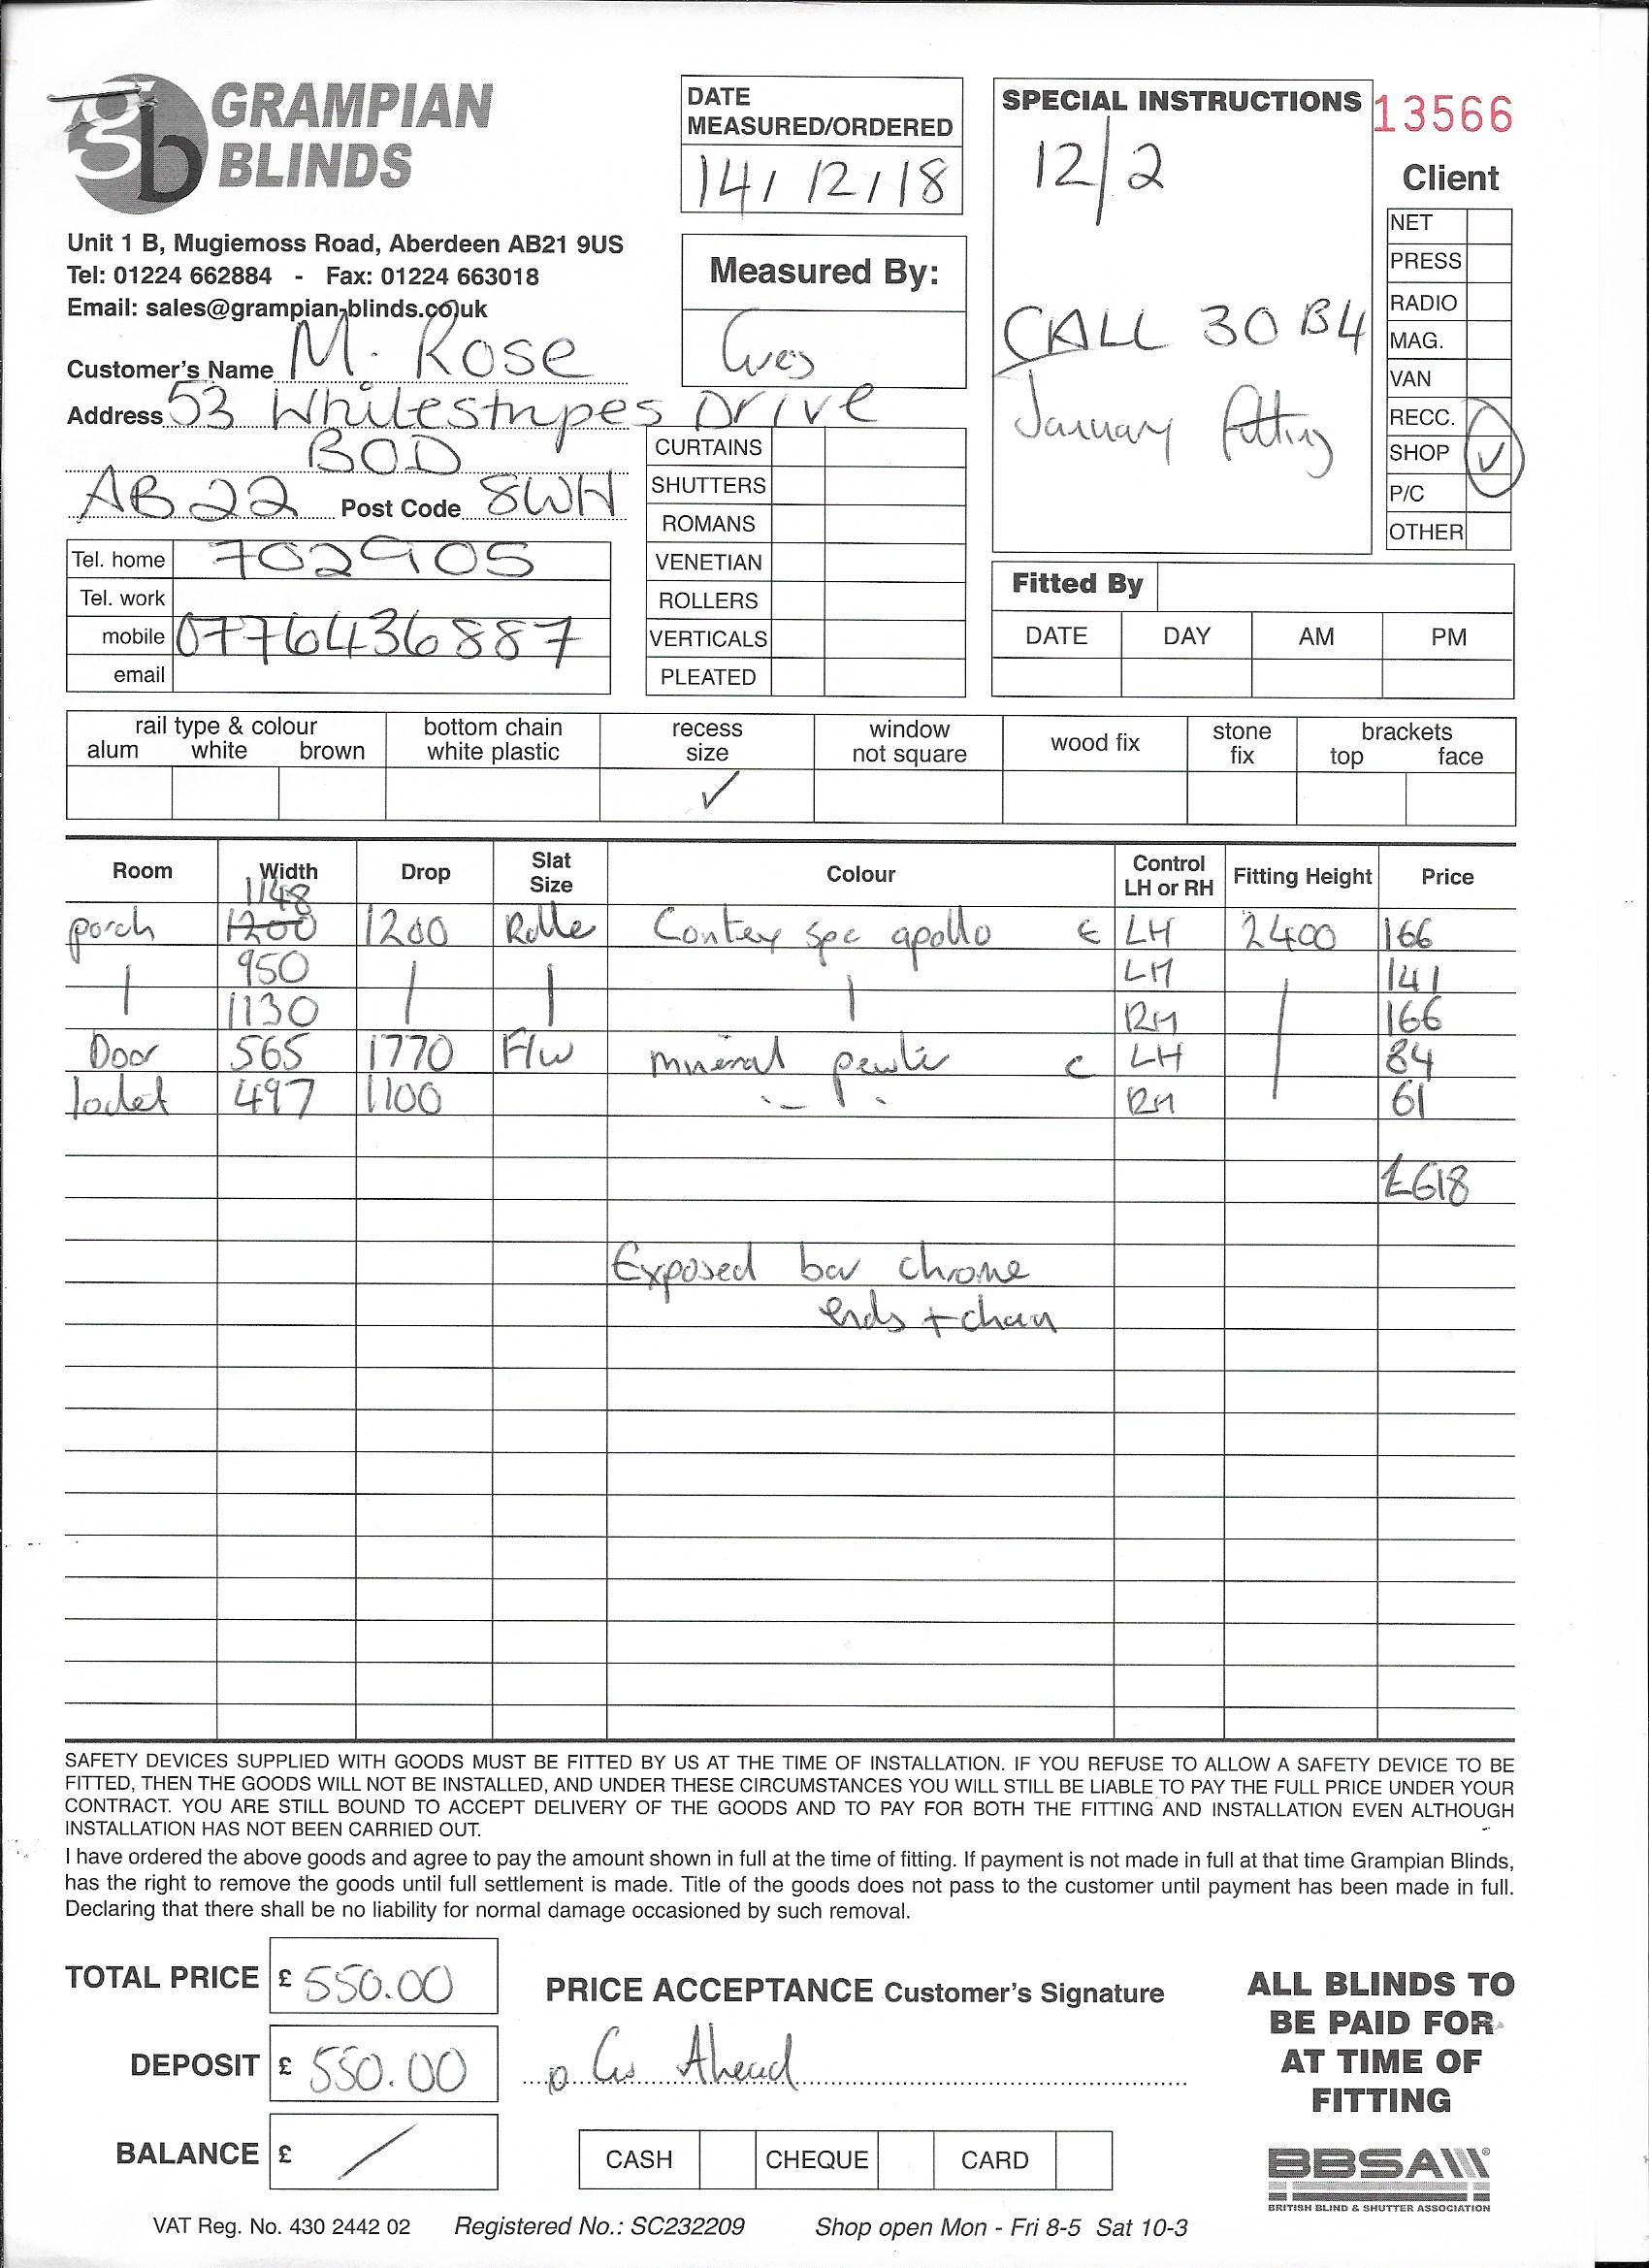 gb GRAMPIAN
BLINDS
Unit 1 B, Mugiemoss Road, Aberdeen AB21 9US
Tel: 01224 662884 - Fax: 01224 663018
Email: sales@grampian-blinds.co.uk
DATE
MEASURED/ORDERED
14/12/18
Measured By:
SPECIAL INSTRUCTIONS
12/2
CALL 30 B4
January fitting
13566
Client
NET
PRESS
RADIO
MAG.
VAN
RECC.
SHOP ✓
P/C
OTHER
Customer's Name M. Rose
Address 53 Whitestripes Drive
BOD
AB22 Post Code 8WH
Tel. home 702905
Tel. work
mobile 0776436887
email
CURTAINS
SHUTTERS
ROMANS
VENETIAN
ROLLERS
VERTICALS
PLEATED
Fitted By
DATE DAY AM PM
rail type & colour
alum white brown
bottom chain
white plastic
recess
size
window
not square
wood fix
stone
fix
brackets
top face
✓
Room Width Drop Slat Size Colour Control LH or RH Fitting Height Price
1148
porch 1200 1200 Rolle spc apollo E LH 2400 166
950 LH 141
1130 RH 166
Door 565 1770 F/W mineral C LH 84
497 1100 RH 61
£618
Exposed bar chrome
ends + chain
SAFETY DEVICES SUPPLIED WITH GOODS MUST BE FITTED BY US AT THE TIME OF INSTALLATION. IF YOU REFUSE TO ALLOW A SAFETY DEVICE TO BE
FITTED, THEN THE GOODS WILL NOT BE INSTALLED, AND UNDER THESE CIRCUMSTANCES YOU WILL STILL BE LIABLE TO PAY THE FULL PRICE UNDER YOUR
CONTRACT. YOU ARE STILL BOUND TO ACCEPT DELIVERY OF THE GOODS AND TO PAY FOR BOTH THE FITTING AND INSTALLATION EVEN ALTHOUGH
INSTALLATION HAS NOT BEEN CARRIED OUT.
I have ordered the above goods and agree to pay the amount shown in full at the time of fitting. If payment is not made in full at that time Grampian Blinds,
has the right to remove the goods until full settlement is made. Title of the goods does not pass to the customer until payment has been made in full.
Declaring that there shall be no liability for normal damage occasioned by such removal.
TOTAL PRICE £ 550.00
DEPOSIT £ 550.00
BALANCE £ /
PRICE ACCEPTANCE Customer's Signature
Ahead
CASH CHEQUE CARD
ALL BLINDS TO
BE PAID FOR
AT TIME OF
FITTING
BBSA
BRITISH BLIND & SHUTTER ASSOCIATION
VAT Reg. No. 430 2442 02 Registered No.: SC232209 Shop open Mon - Fri 8-5 Sat 10-3